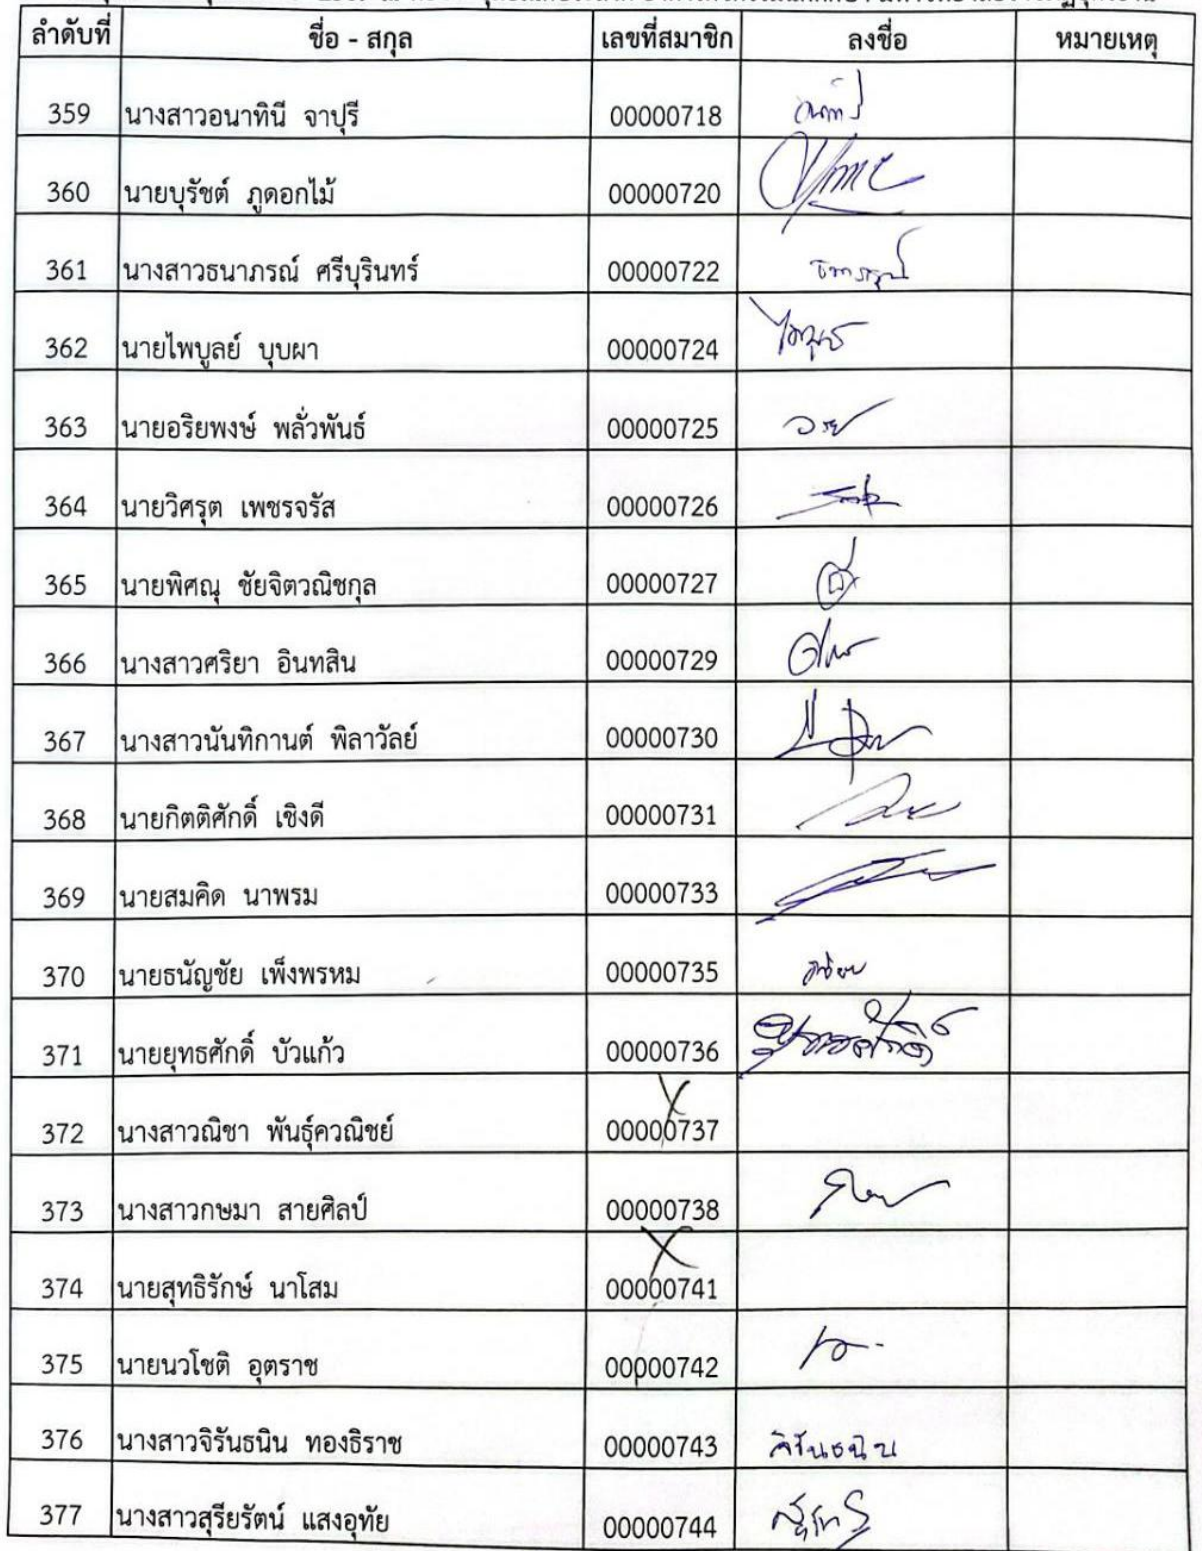 ลำดับที่ ชื่อ - สกุล เลขที่สมาชิก ลงชื่อ หมายเหตุ
359 นางสาวอนาทินี จาปุรี 00000718
360 นายบุรัชต์ ภูดอกไม้ 00000720
361 นางสาวธนาภรณ์ ศรีบุรินทร์ 00000722
362 นายไพบูลย์ บุบผา 00000724
363 นายอริยพงษ์ พลั่วพันธ์ 00000725
364 นายวิศรุต เพชรจรัส 00000726
365 นายพิศณุ ชัยจิตวณิชกุล 00000727
366 นางสาวศริยา อินทสิน 00000729
367 นางสาวนันทิกานต์ พิลาวัลย์ 00000730
368 นายกิตติศักดิ์ เชิงดี 00000731
369 นายสมคิด นาพรม 00000733
370 นายธนัญชัย เพ็งพรหม 00000735
371 นายยุทธศักดิ์ บัวแก้ว 00000736 ยุทธศักดิ์
372 นางสาวณิชา พันธุ์ควณิชย์ 00000737
373 นางสาวกษมา สายศิลป์ 00000738
374 นายสุทธิรักษ์ นาโสม 00000741
375 นายนวโชติ อุตราช 00000742
376 นางสาวจิรันธนิน ทองธิราช 00000743 จิรันธนิน
377 นางสาวสุรียรัตน์ แสงอุทัย 00000744